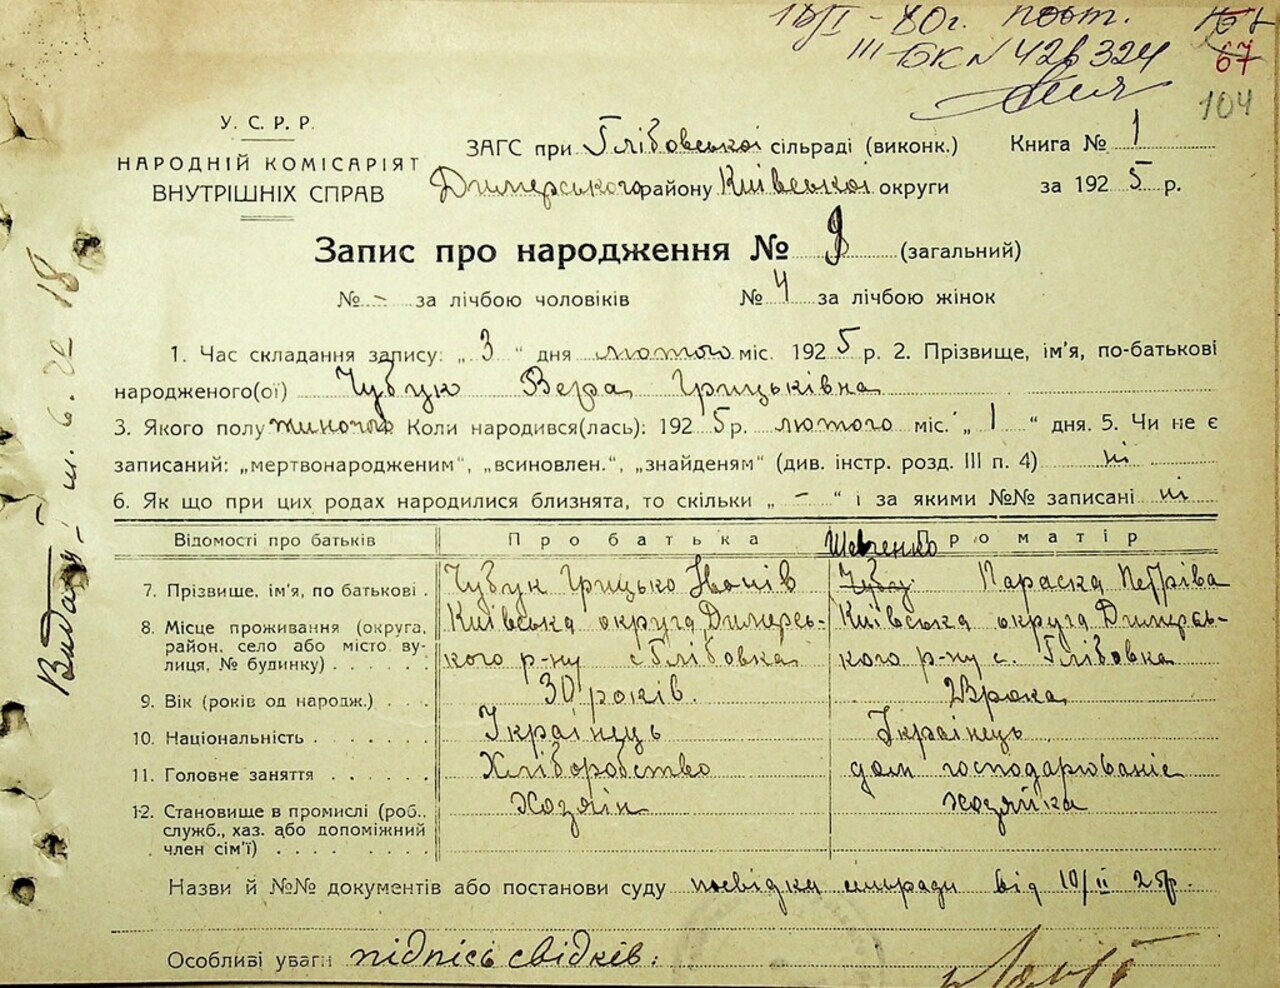 пост. 67
III БК № 426324
67
104
У. С. Р. Р.
НАРОДНІЙ КОМІСАРІЯТ
ВНУТРІШНІХ СПРАВ
ЗАГС при Глібовської сільраді (виконк.)
Димерського району Київської округи
Книга № 1
за 1925 р.
Запис про народження № 9 (загальний)
№ - за лічбою чоловіків № 4 за лічбою жінок
1. Час складання запису: „ 3 “ дня лютого міс. 1925 р. 2. Прізвище, ім'я, по-батькові
народженого(ої) Чубук Вера Грицьківна
3. Якого полу жиночого Коли народився(лась): 1925 р. лютого міс. „ 1 “ дня. 5. Чи не є
записаний: „мертвонародженим“, „всиновлен.“, „знайденям“ (див. інстр. розд. III п. 4) ні
6. Як що при цих родах народилися близнята, то скільки „ - “ і за якими №№ записані ні
Відомості про батьків Про батька Про матір
Шевченко
7. Прізвище, ім'я, по батькові . Чубук Грицько Чубу Параска Петріва
8. Місце проживання (округа, район, село або місто вулиця, № будинку) . . . . . Київська округа Димерського р-ну с Глібовка Київська округа Димерського р-ну с. Глібовка
9. Вік (років од народж.) . . . 30 років.
10. Національність . . . . . . . Українець Українець
11. Головне заняття . . . . . . Хліборобство дом господарюваніє
12. Становище в промислі (роб., служб., хаз. або допоміжний член сім'ї) . . . . . . . . Хозяін хозяйка
Назви й №№ документів або постанови суду посвідка сільради від 10/II 25р.
Особливі уваги підпісь свідків:
Видано